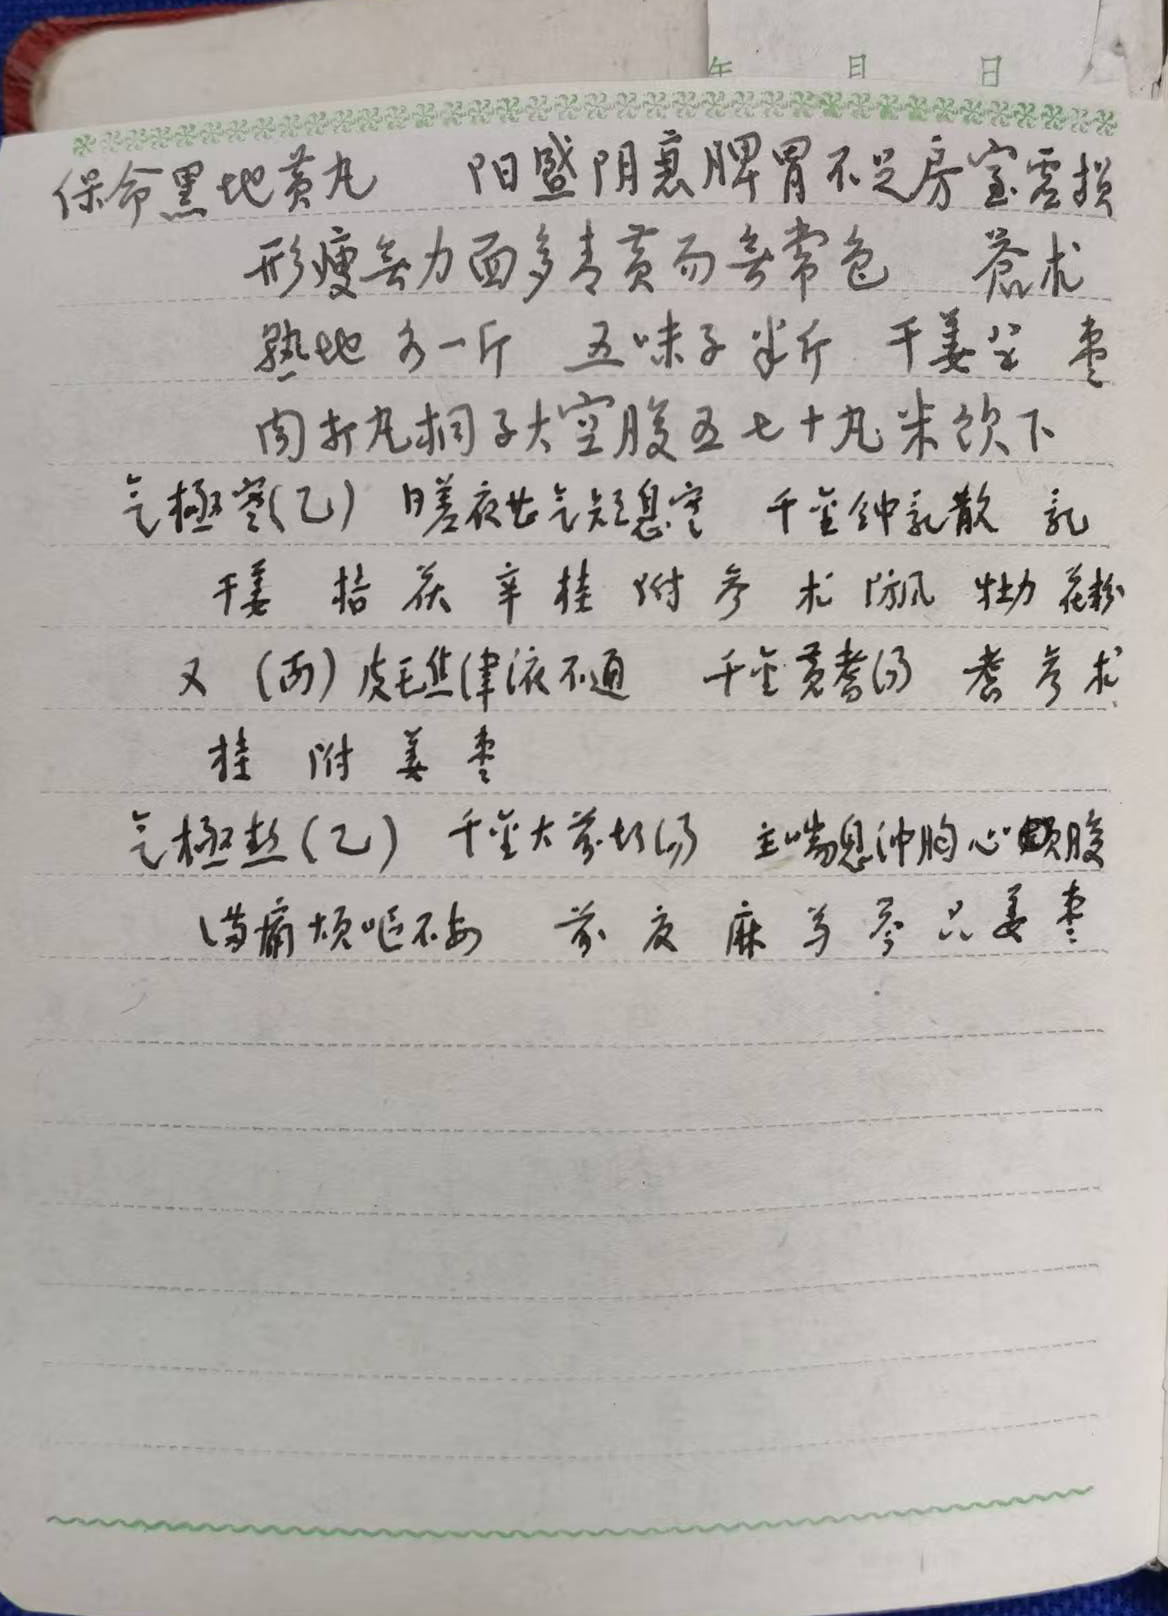 年 月 日
保命黑地黄丸 阳盛阴衰脾胃不足房室虚损
形瘦无力面多青黄而无常色 苍术
熟地 各一斤 五味子 半斤 干姜 枣
肉打丸桐子大空腹五七十丸米饮下
气極寒(乙) 日差夜甚气短息寒 千金钟乳散 乳
干姜 桔 茯 辛 桂 附 参 术 防风 牡力 花粉
又 (丙) 皮毛焦津液不通 千金黄耆汤 耆 参 术
桂 附 姜 枣
气極热(乙) 千金大前胡汤 主喘息冲胸心 腹
满痛烦呕不安 前 夏 麻 芍 芩 只 姜 枣